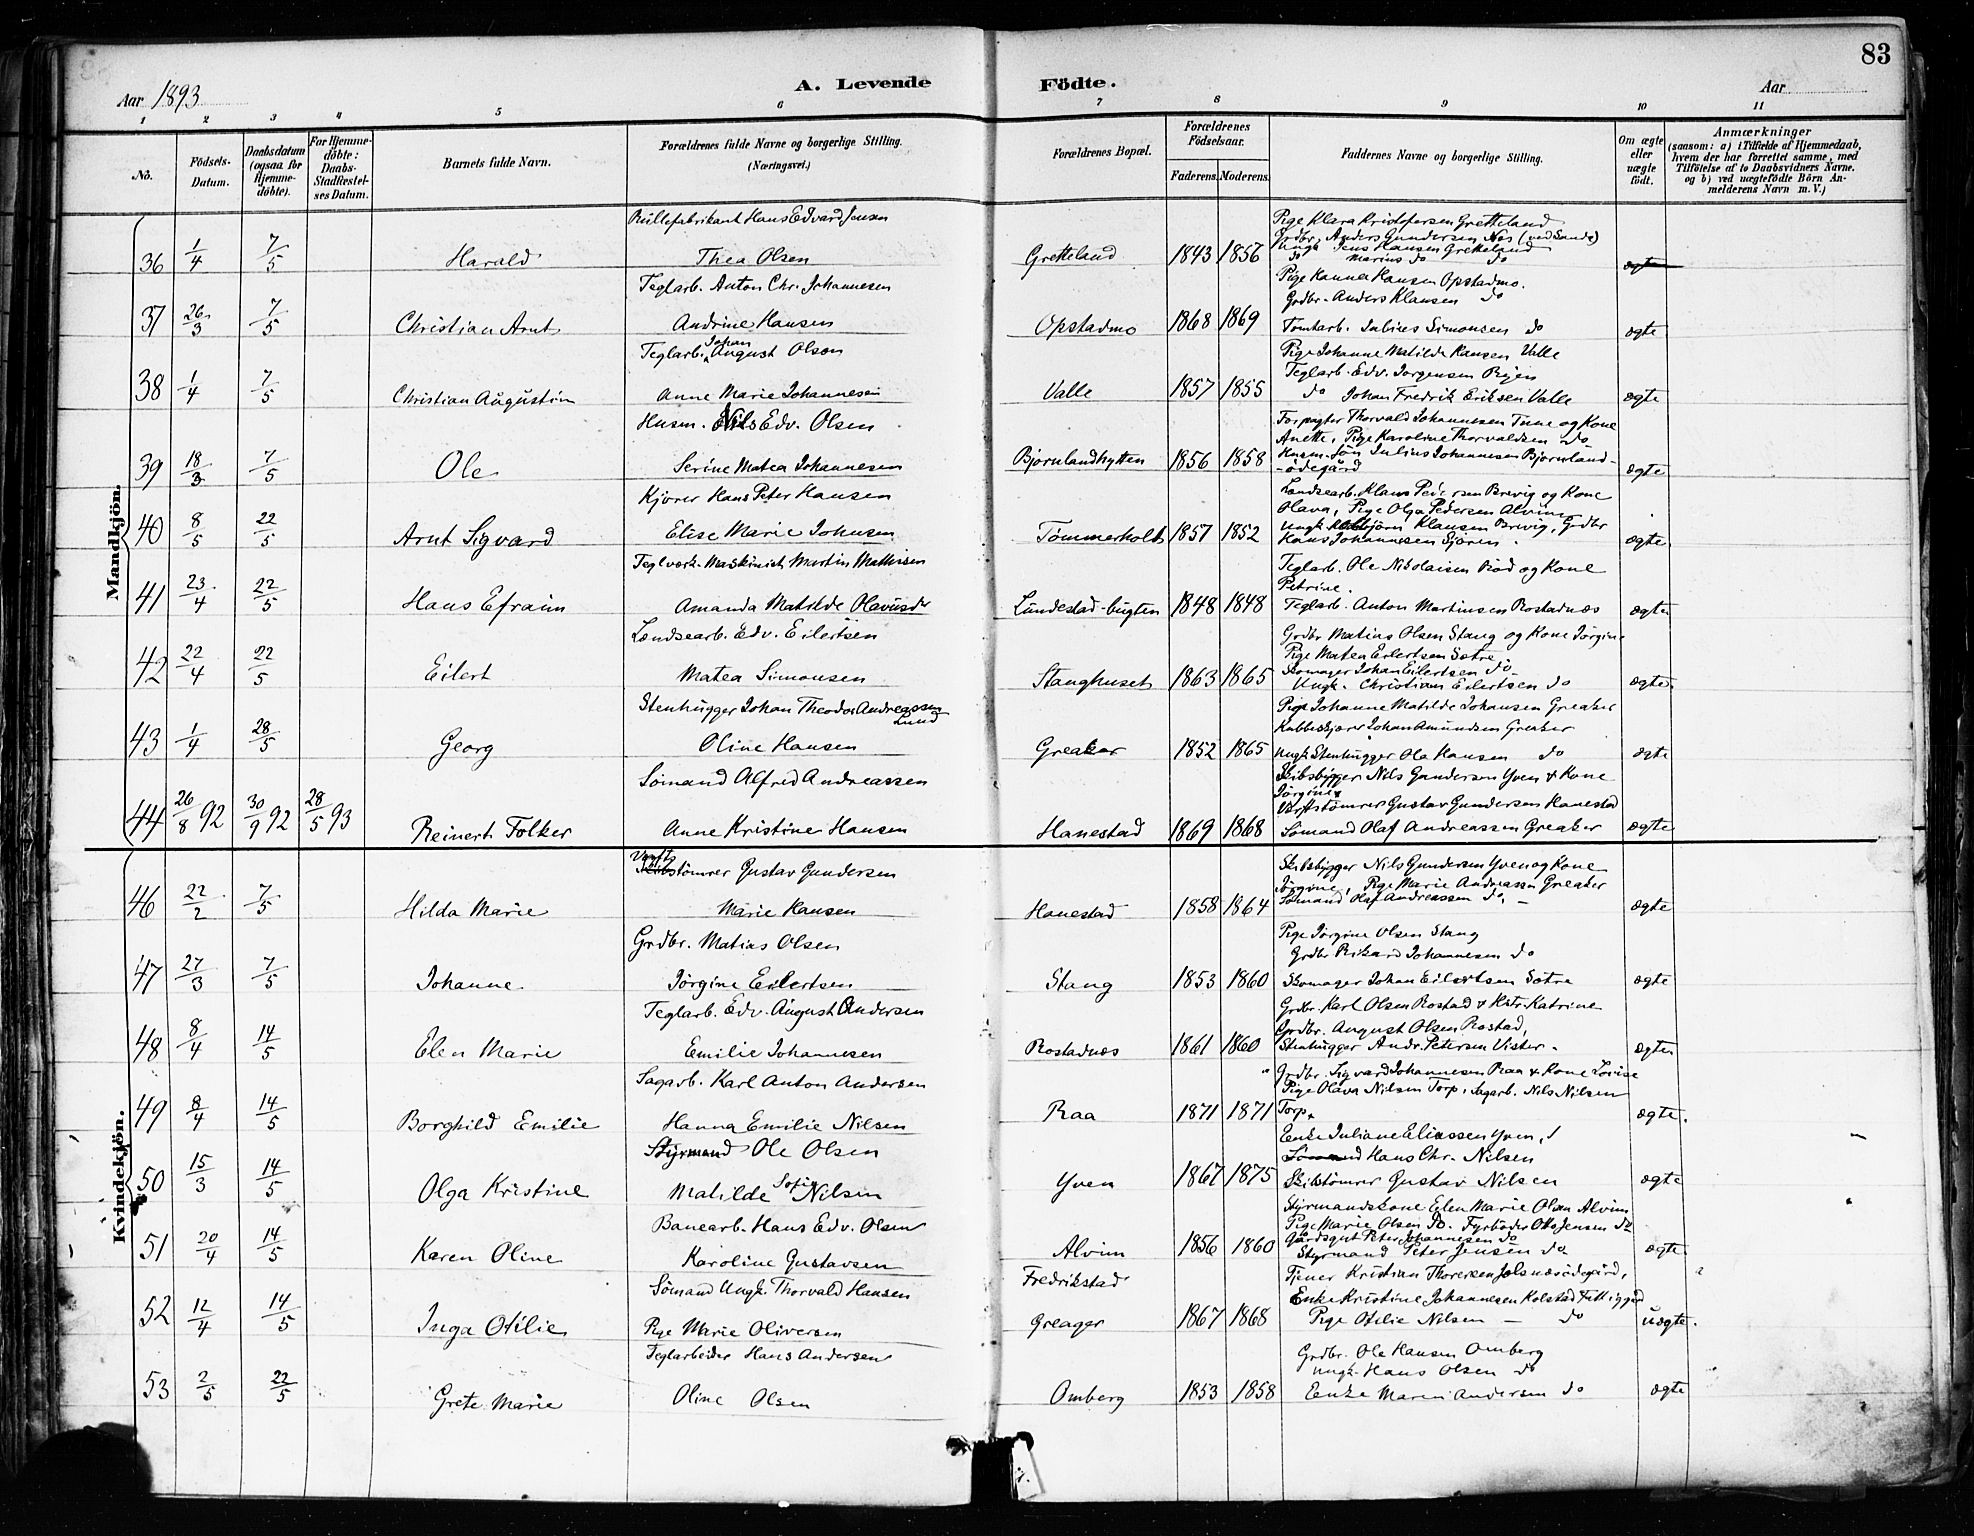 83
Aar 1893
A. Levende
Födte.
Aar
1 2 3 4 5 6 7 8 9 10 11
No.
Födsels-Datum.
Daabsdatum (ogsaa for Hjemme-döbte).
For Hjemme-döbte: Daabs-Stadfæstel-ses Datum.
Barnets fulde Navn.
Forældrenes fulde Navne og borgerlige Stilling.
(Næringsvei.)
Forældrenes Bopæl.
Forældrenes Födselsaar.
Faderens. Moderens.
Faddernes Navne og borgerlige Stilling.
Om ægte eller uægte födt.
Anmærkninger
(sansom: a) i Tilfælde af Hjemmedaab, hvem der har forrettet samme, med Tilföielse af to Daabsvidners Navne. og b) ved uægtefödte Börn An-melderens Navn m. V.)
Mandkjön.
Rullefabrikant Hans Edvard Jensen
Pige Klara Kristofersen Gretteland
Grdbr. Anders Gundersen Nes (ved Sande)
Ungk Jens Hansen Gretteland
36 1/4 7/5 Harald Thea Olsen Gretteland 1843 1856 do Marius do do ægte
Teglarb. Anton Chr. Johannesen
Pige Hanna Hansen Opstadmo.
Grdbr. Anders Klausen do
37 26/3 7/5 Christian Arnt Andrine Hansen Opstadmo 1868 1869 Tomtarb. Julius Simonsen do ægte
Teglarb. Johan August Olsen
Pige Johanne Matilde Hansen Valle
Teglarb. Edv. Jorgensen
38 1/4 7/5 Christian Augustin Anne Marie Johannesen Valle 1857 1855 do Johan Fredrik Eriksen Valle ægte
Husm. Nils Edv. Olsen
Forpagter Thorvald Johannesen Tune og Kone
Anette, Pige Karoline Thorvaldsen do
39 18/3 7/5 Ole Serine Matea Johannesen Bjørnlandhytten 1856 1858 Husm. Søn Julius Johannesen Bjørnland-
-ødegård ægte
Kjører Hans Peter Hansen
Lændsearb. Klaus Pedersen Brevig og Kone
Olava, Pige Olga Pedersen Alvim
Ungk Klausen Brevig, Grdbr
40 8/5 22/5 Arnt Sigvard Elise Marie Johnsen Tømmerholt 1857 1852 Hans Johannesen Sjøren. ægte.
Teglværk. Maskinist Martin Mathisen
Teglarb. Ole Nikolaisen Rød og Kone
Petrine.
41 23/4 22/5 Hans Efraim Amanda Matilde Olavusdr Lundestad-bugten 1848 1848 Teglarb. Anton Martinsen Rostadnæs ægte
Lændsearb. Edv. Eilertsen
Grdbr Matias Olsen Stang og Kone Jørgine
Pige Matea Eilertsen Sætre
Skomager Johan Eilertsen do
42 22/4 22/5 Eilert Matea Simonsen Stanghuset 1863 1865 Ungk. Christian Eilertsen do ægte.
Stenhugger Johan Theodor Andreassen Lund
Pige Johanne Matilde Johansen Greaker
Kubbeskjører Johan Amundsen Greaker
43 1/4 28/5 Georg Oline Hansen Greaker 1852 1865 Ungk Stenhugger Ole Hansen do ægte
Sømand Alfred Andreassen
Skibsbygger Nils Gundersen Yven & Kone
Jørgine &
Værftstømrer Gustav Gundersen Hanestad
44 26/8 92 30/9 92 28/5 93 Reinert Folker Anne Kristine Hansen Hanestad 1869 1868 Sømand Olaf Andreassen Greaker ægte
Kvindekjön.
Værftstømrer Gustav Gundersen
Skibsbygger Nils Gundersen Yven og Kone
Jørgine, Pige Marie Andreassen Greaker
46 22/2 7/5 Hilda Marie Marie Hansen Hanestad 1858 1864 Sømand Olaf Andreassen do. — ægte
Grdbr. Matias Olsen
Pige Jørgine Olsen Stang
Grdbr Rikard Johannesen do
47 27/3 7/5 Johanne Jørgine Eilertsen Stang 1853 1860 Skomager Johan Eilertsen Sætre ægte
Teglarb. Edv. August Andersen
Grdbr. Karl Olsen Rostad & Hstr. Katrine
Grdbr. August Olsen Rostad,
48 8/4 14/5 Elen Marie Emilie Johannesen Rostadnæs 1861 1860 Stenhugger Andr. Petersen Vister. ægte
Sagarb. Karl Anton Andersen
Grdbr. Sigvard Johannesen Raa & Kone Lovise
Pige Olava Nilsen Torp, Sagarb. Nils Nilsen
49 8/4 14/5 Borghild Emilie Hanna Emilie Nilsen Raa 1871 1871 Torp ægte.
Styrmand Ole Olsen
Enke Juliane Eliassen Yven,
Sømand Hans Chr. Nilsen
50 15/3 14/5 Olga Kristine Matilde Sofie Nilsen Yven 1867 1875 Skibstømrer Gustav Nilsen ægte
Banearb. Hans Edv. Olsen
Styrmandskone Elen Marie Olsen Alvim
Pige Marie Olsen do. Fyrbøder Otto Jensen do
Gårdsgut Peter Johannesen do
51 20/4 14/5 Karen Oline Karoline Gustavsen Alvim 1856 1860 Styrmand Peter Jensen do ægte.
Sømand Ungk. Thorvald Hansen Fredrikstad
Tjener Kristian Thorersen
Enke Kristine Johannesen Kolstad
52 12/4 14/5 Inga Otilie Pige Marie Oliversen Greager 1867 1868 Pige Otilie Nilsen — do uægte.
Teglarbeider Hans Andersen
Grdbr. Ole Hansen Omberg
Ungk. Hans Olsen do
53 2/5 22/5 Grete Marie Oline Olsen Omberg 1853 1858 Enke Maren Andersen do ægte